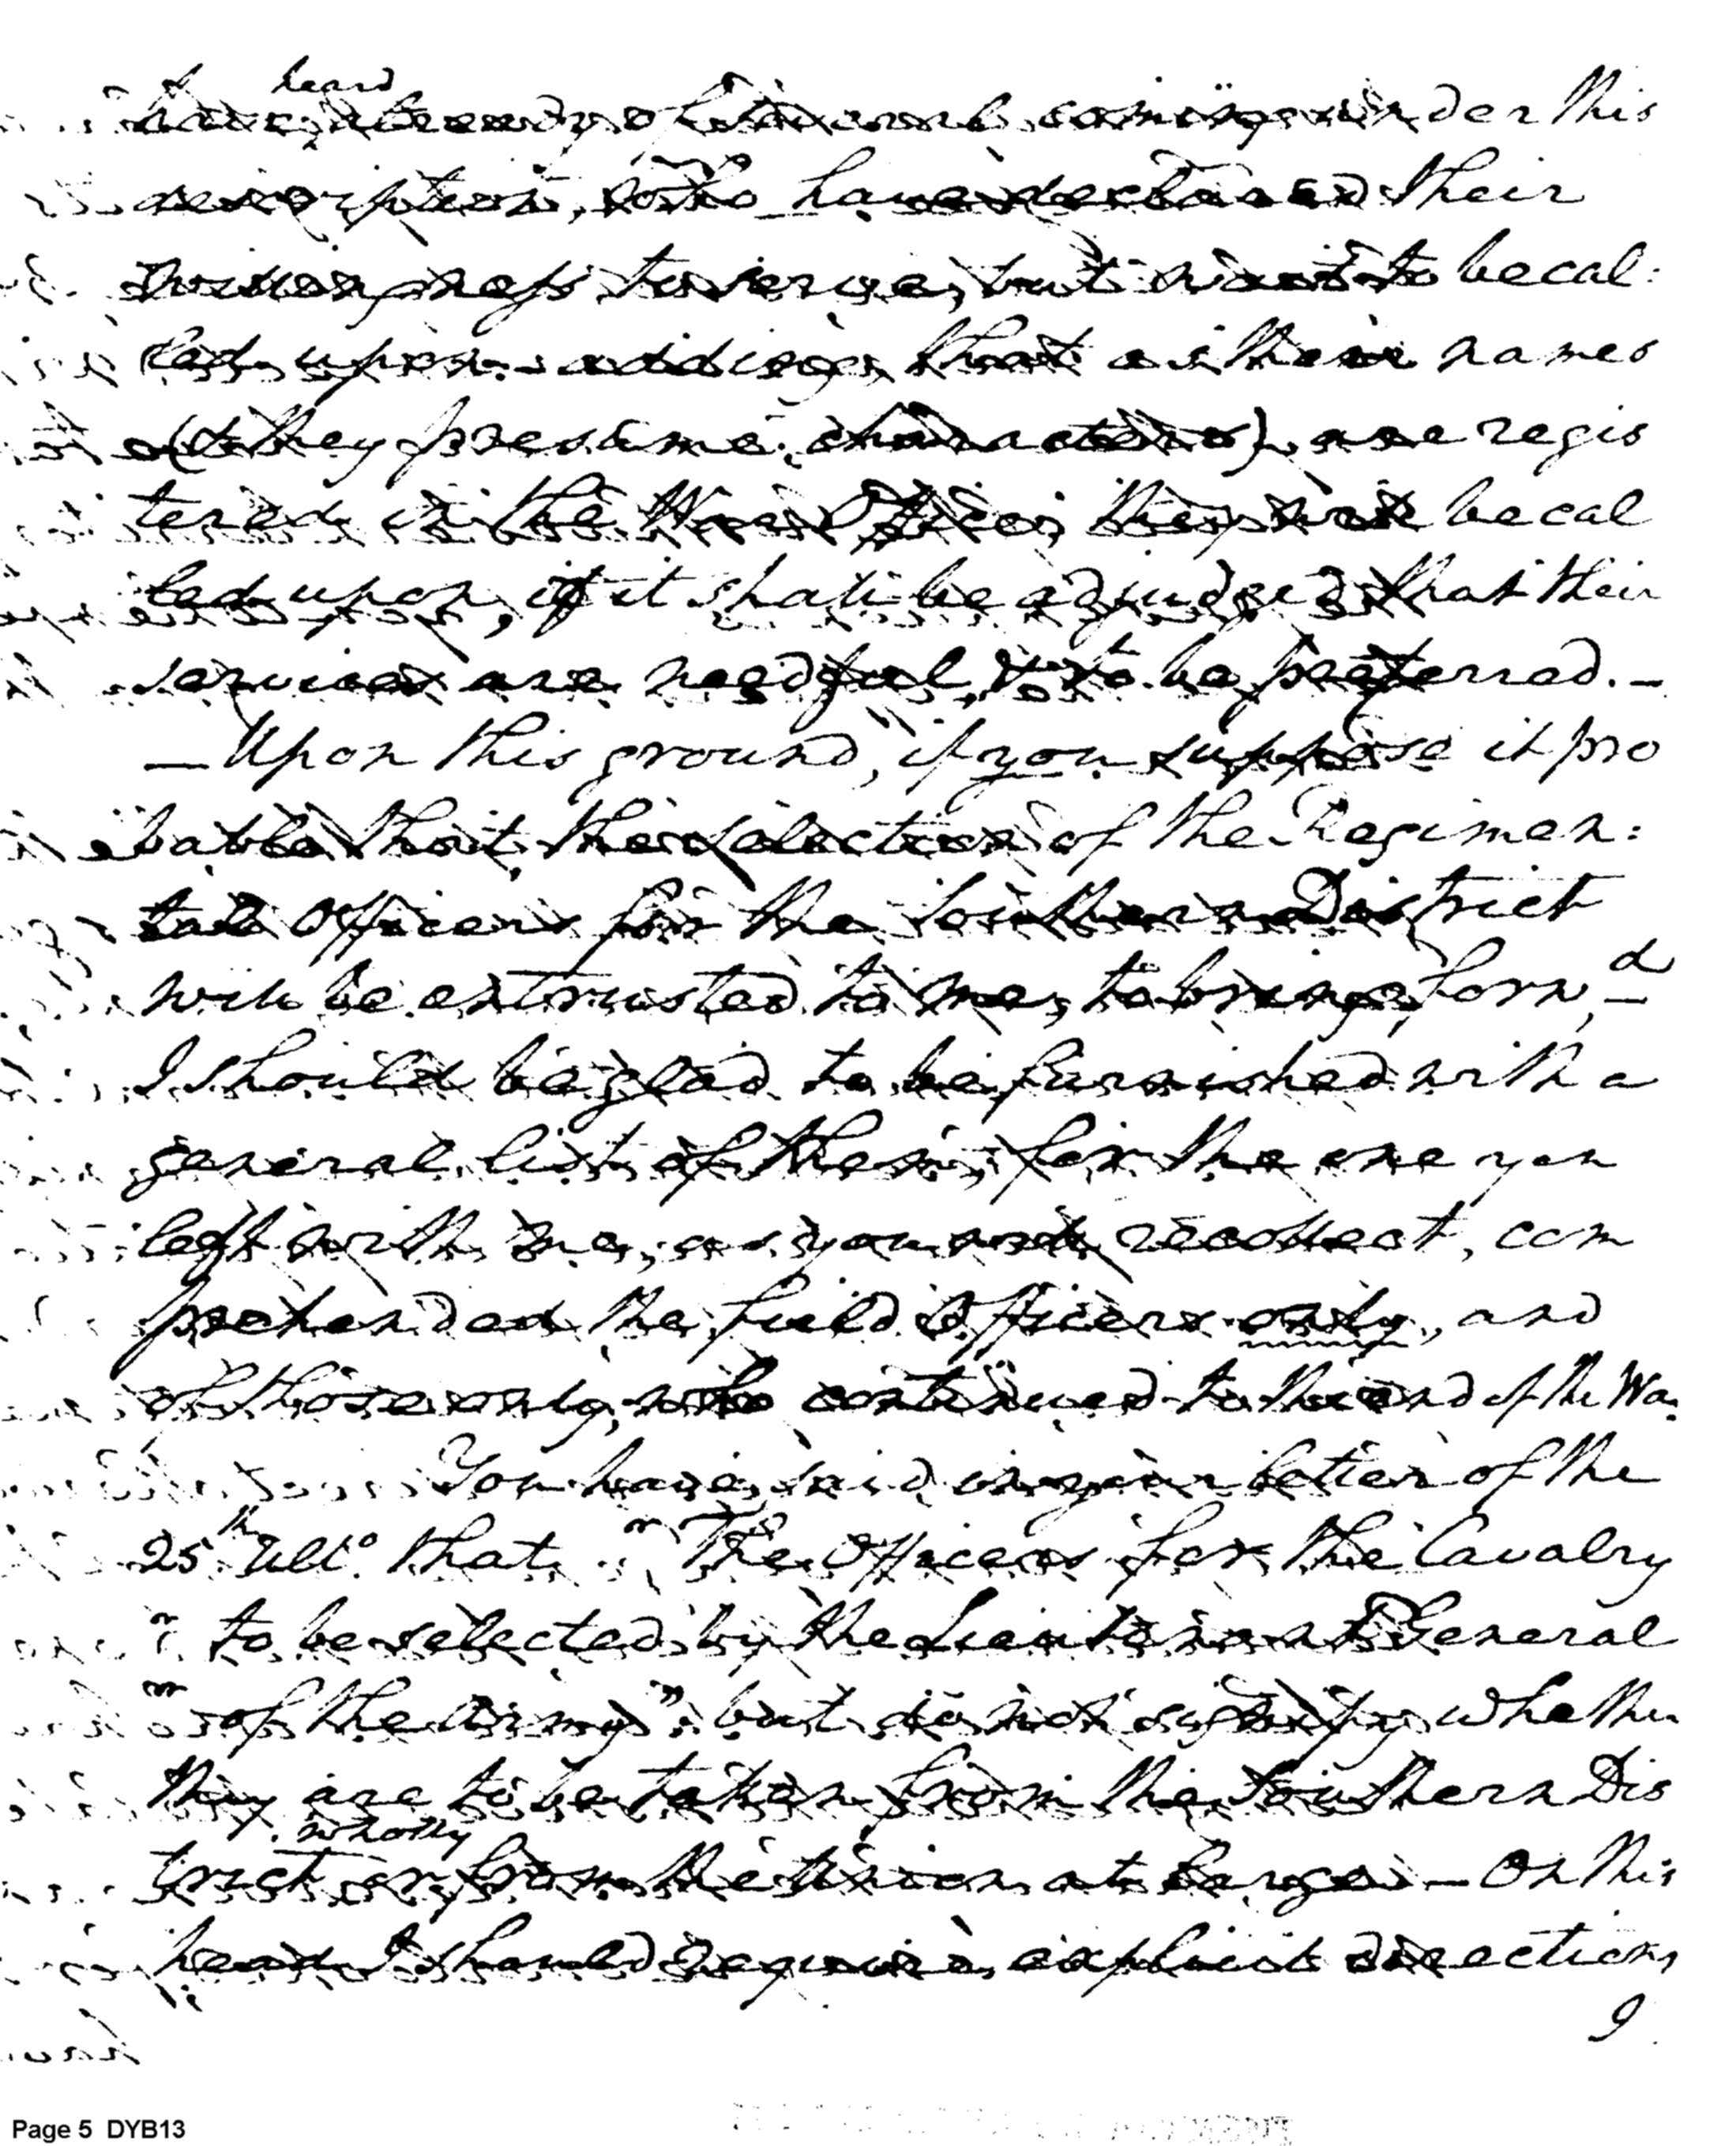 heard
have already ^ of several coming under this
description, who have declared their
willingness to serve, but want to be cal:
led upon:—adding, that as their names
(& they presume characters), are regis
tered in the War Office, they will be cal
led upon, if it shall be adjudged that their
services are needful, & to be preferred.—
—Upon this ground, if you suppose it pro
bable that the selection of the Regimen:
tal Officers for the Southern District
will be entrusted to me, to bring forw,d—
I should be glad to be furnished with a
general list of them; for the one you
left with me, as you will recollect, com
prehended the field Officers only, and
of those only, who continued to the end of the War.
You have said in your letter of the
25th Ulto. that "The Officers for the Cavalry
" to be selected by the Lieutenant General
" of the Army"; but do not signify whether
they are to be taken from the Southern Dis
wholly
trict or from the Union at large.—On this
head I should require explicit directions
I
Page 5 DYB13